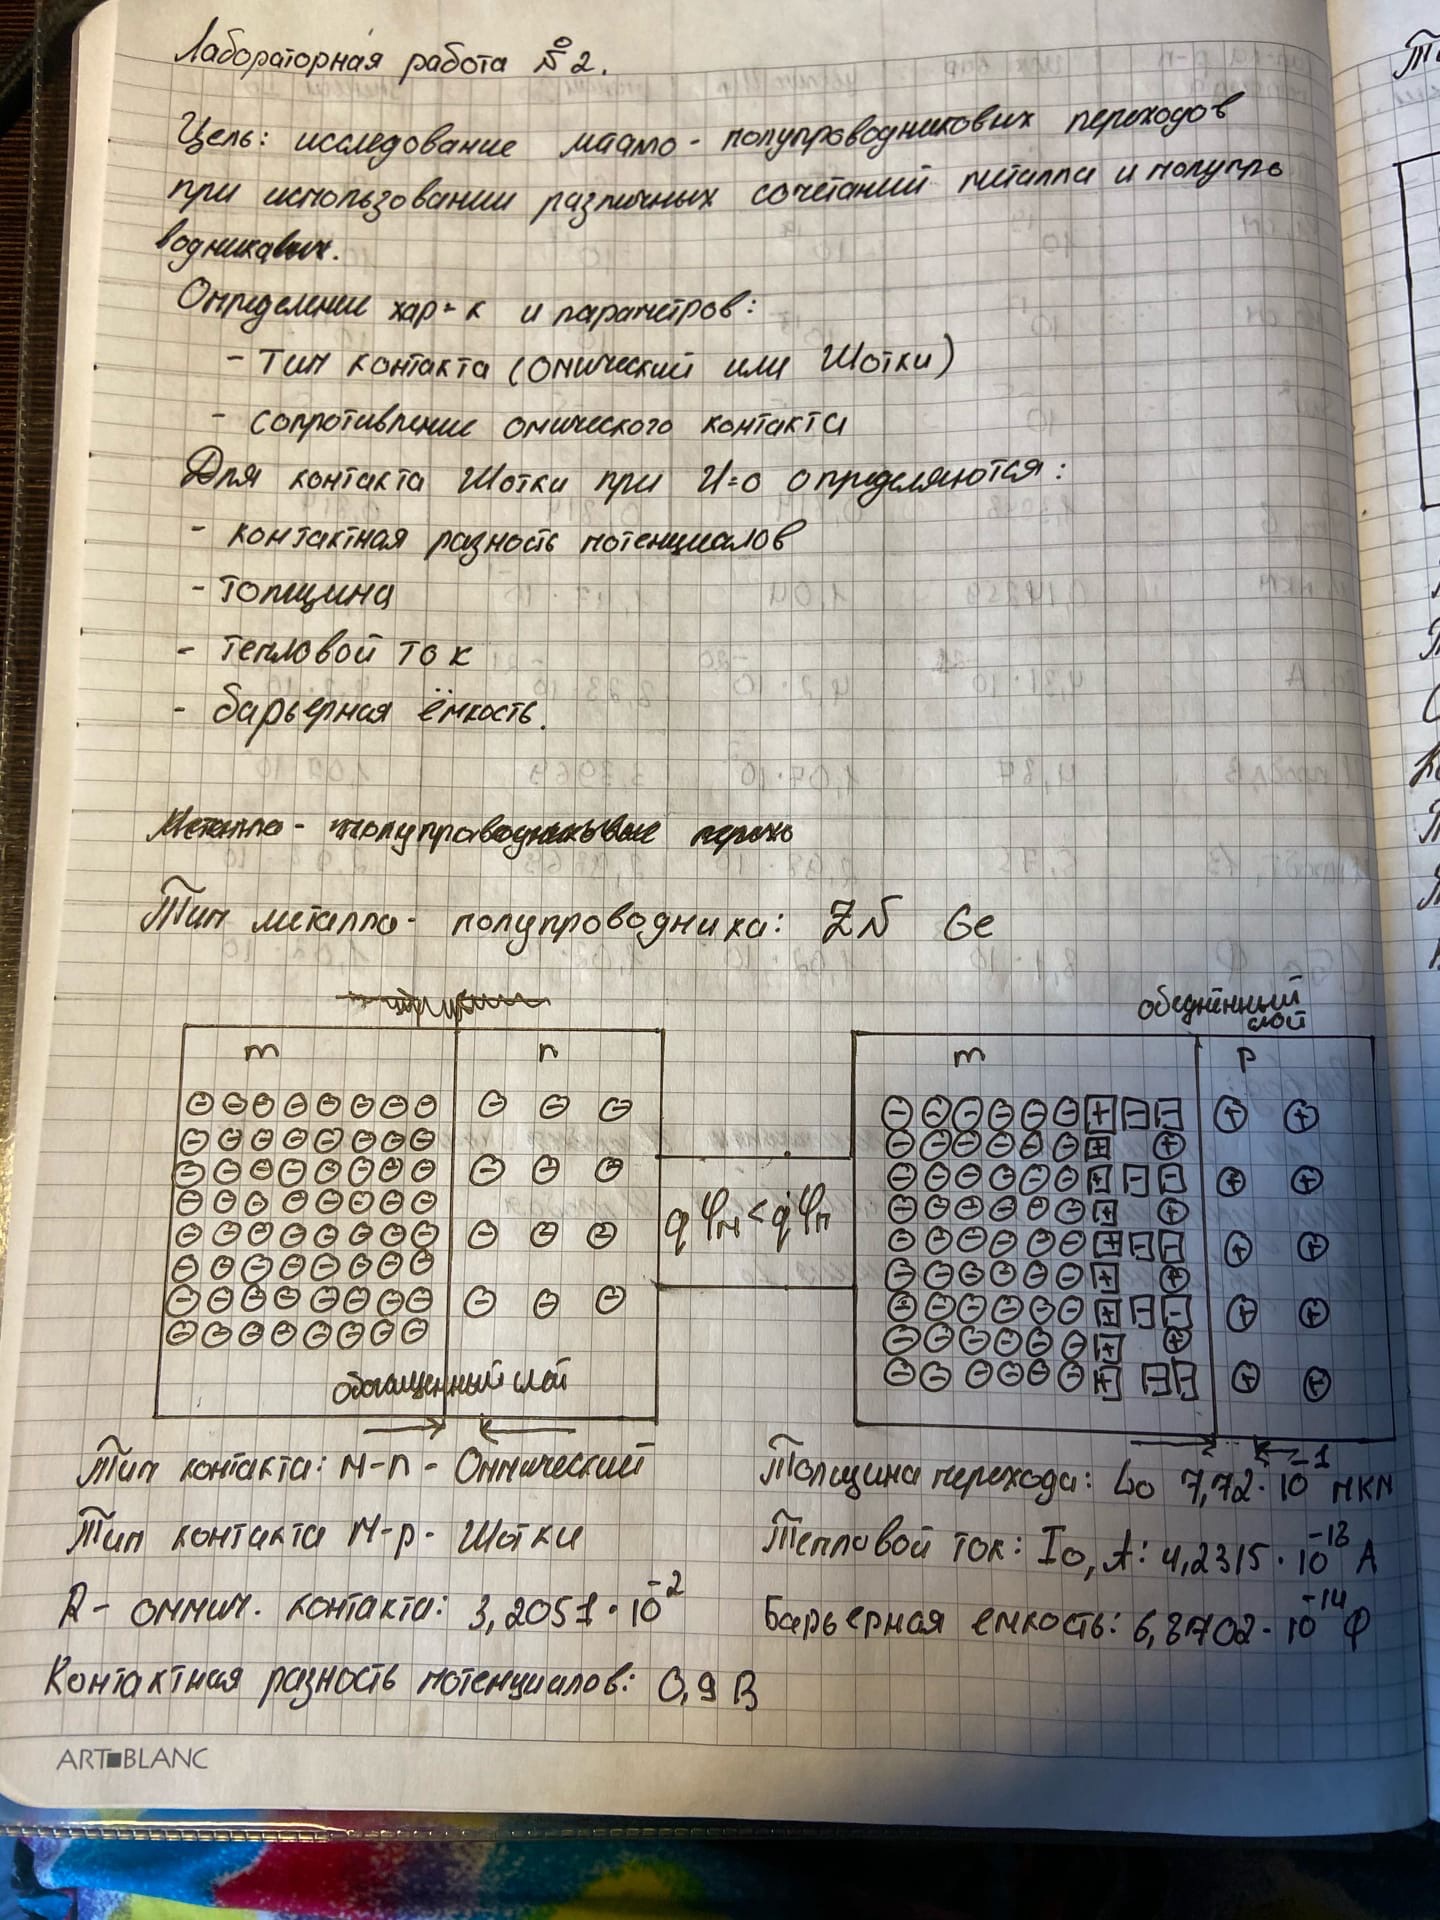 Лабораторная работа №2.
Цель: исследование металло-полупроводниковых переходов
при использовании различных сочетаний металла и полупро
водниковых.
Определение хар-к и параметров:
- тип контакта (омический или Шотки)
- сопротивление омического контакта
Для контакта Шотки при U=0 определяются:
- контактная разность потенциалов
- толщина
- тепловой ток
- барьерная ёмкость.
Металло-полупроводниковые
Тип металла-полупроводника: ZN Ge
обеднённый
слой
m n m p
qφм < qφп
обогащенный слой
Тип контакта: м-n - Оммический Толщина перехода: Lo 7,72·10⁻¹ мкм
Тип контакта м-p - Шотки Тепловой ток: Io, A: 4,2315·10⁻¹³ А
R - оммич. контакта: 3,2051·10⁻² Барьерная емкость: 6,8702·10⁻¹⁴ Ф
Контактная разность потенциалов: 0,9 В
ART BLANC